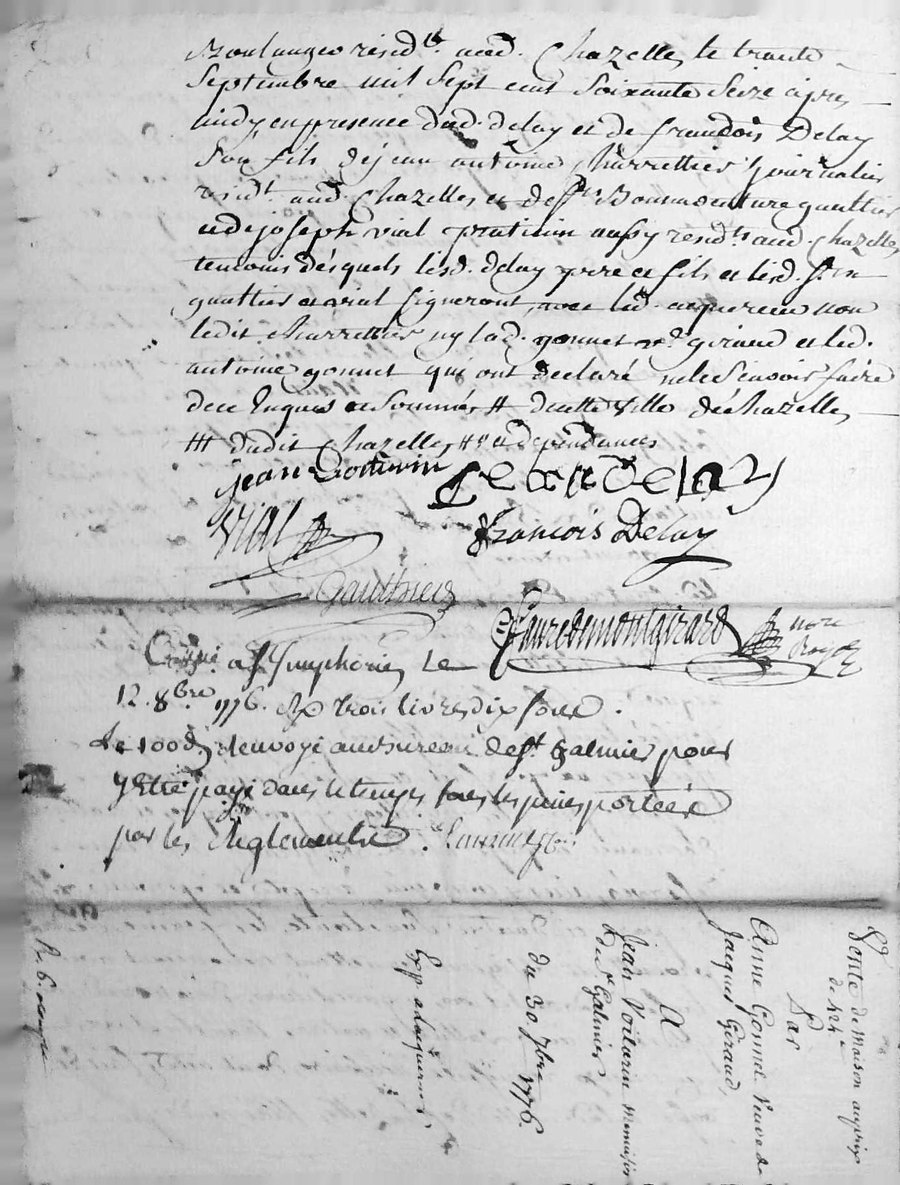 Boulanger résidt. aud. Chazelles le trante
Septembre mil Sept cent Soixante Seize après
midy, en presence dud. delay et de françois Delay
Son fils de jean antoine Charrettier journalier
residt. aud. Chazelles et de Sr. Bonnaventure gaultier
et de joseph vial praticien aussy residts. aud. Chazelles
temoins desquels lesd. delay pere et fils et lesd. Srs.
gaultier et vial signeront, avec led. acquereur non
ledit Charrettier ny lad. gonnet ve. giraud et led.
antoine gonnet qui ont declaré ne le Scavoir faire
de ce Enquis et Sommés # de cette ville de chazelles
## dudit Chazelles, et dependances
jean Voiturin
Delay
Vial
françois Delay
Gaulthier
fauredemontgirard nore Royal
Controlé a St. Symphorien Le
12. 8bre. 1776. Rx trois livres dix sous.
Le 100e d. Renvoyé au bureau de St. Galmier pour
y Etre payé dans le temps sous les peines portées
par les Reglements.
89
Vente de Maison au prix
de 424 #
Par
Anne Gonnet Veuve de
Jacques Giraud,
A
Jean Voiturin Menuisier
de St. Galmier
du 30 7bre 1776.
Exp. a l'acquereur